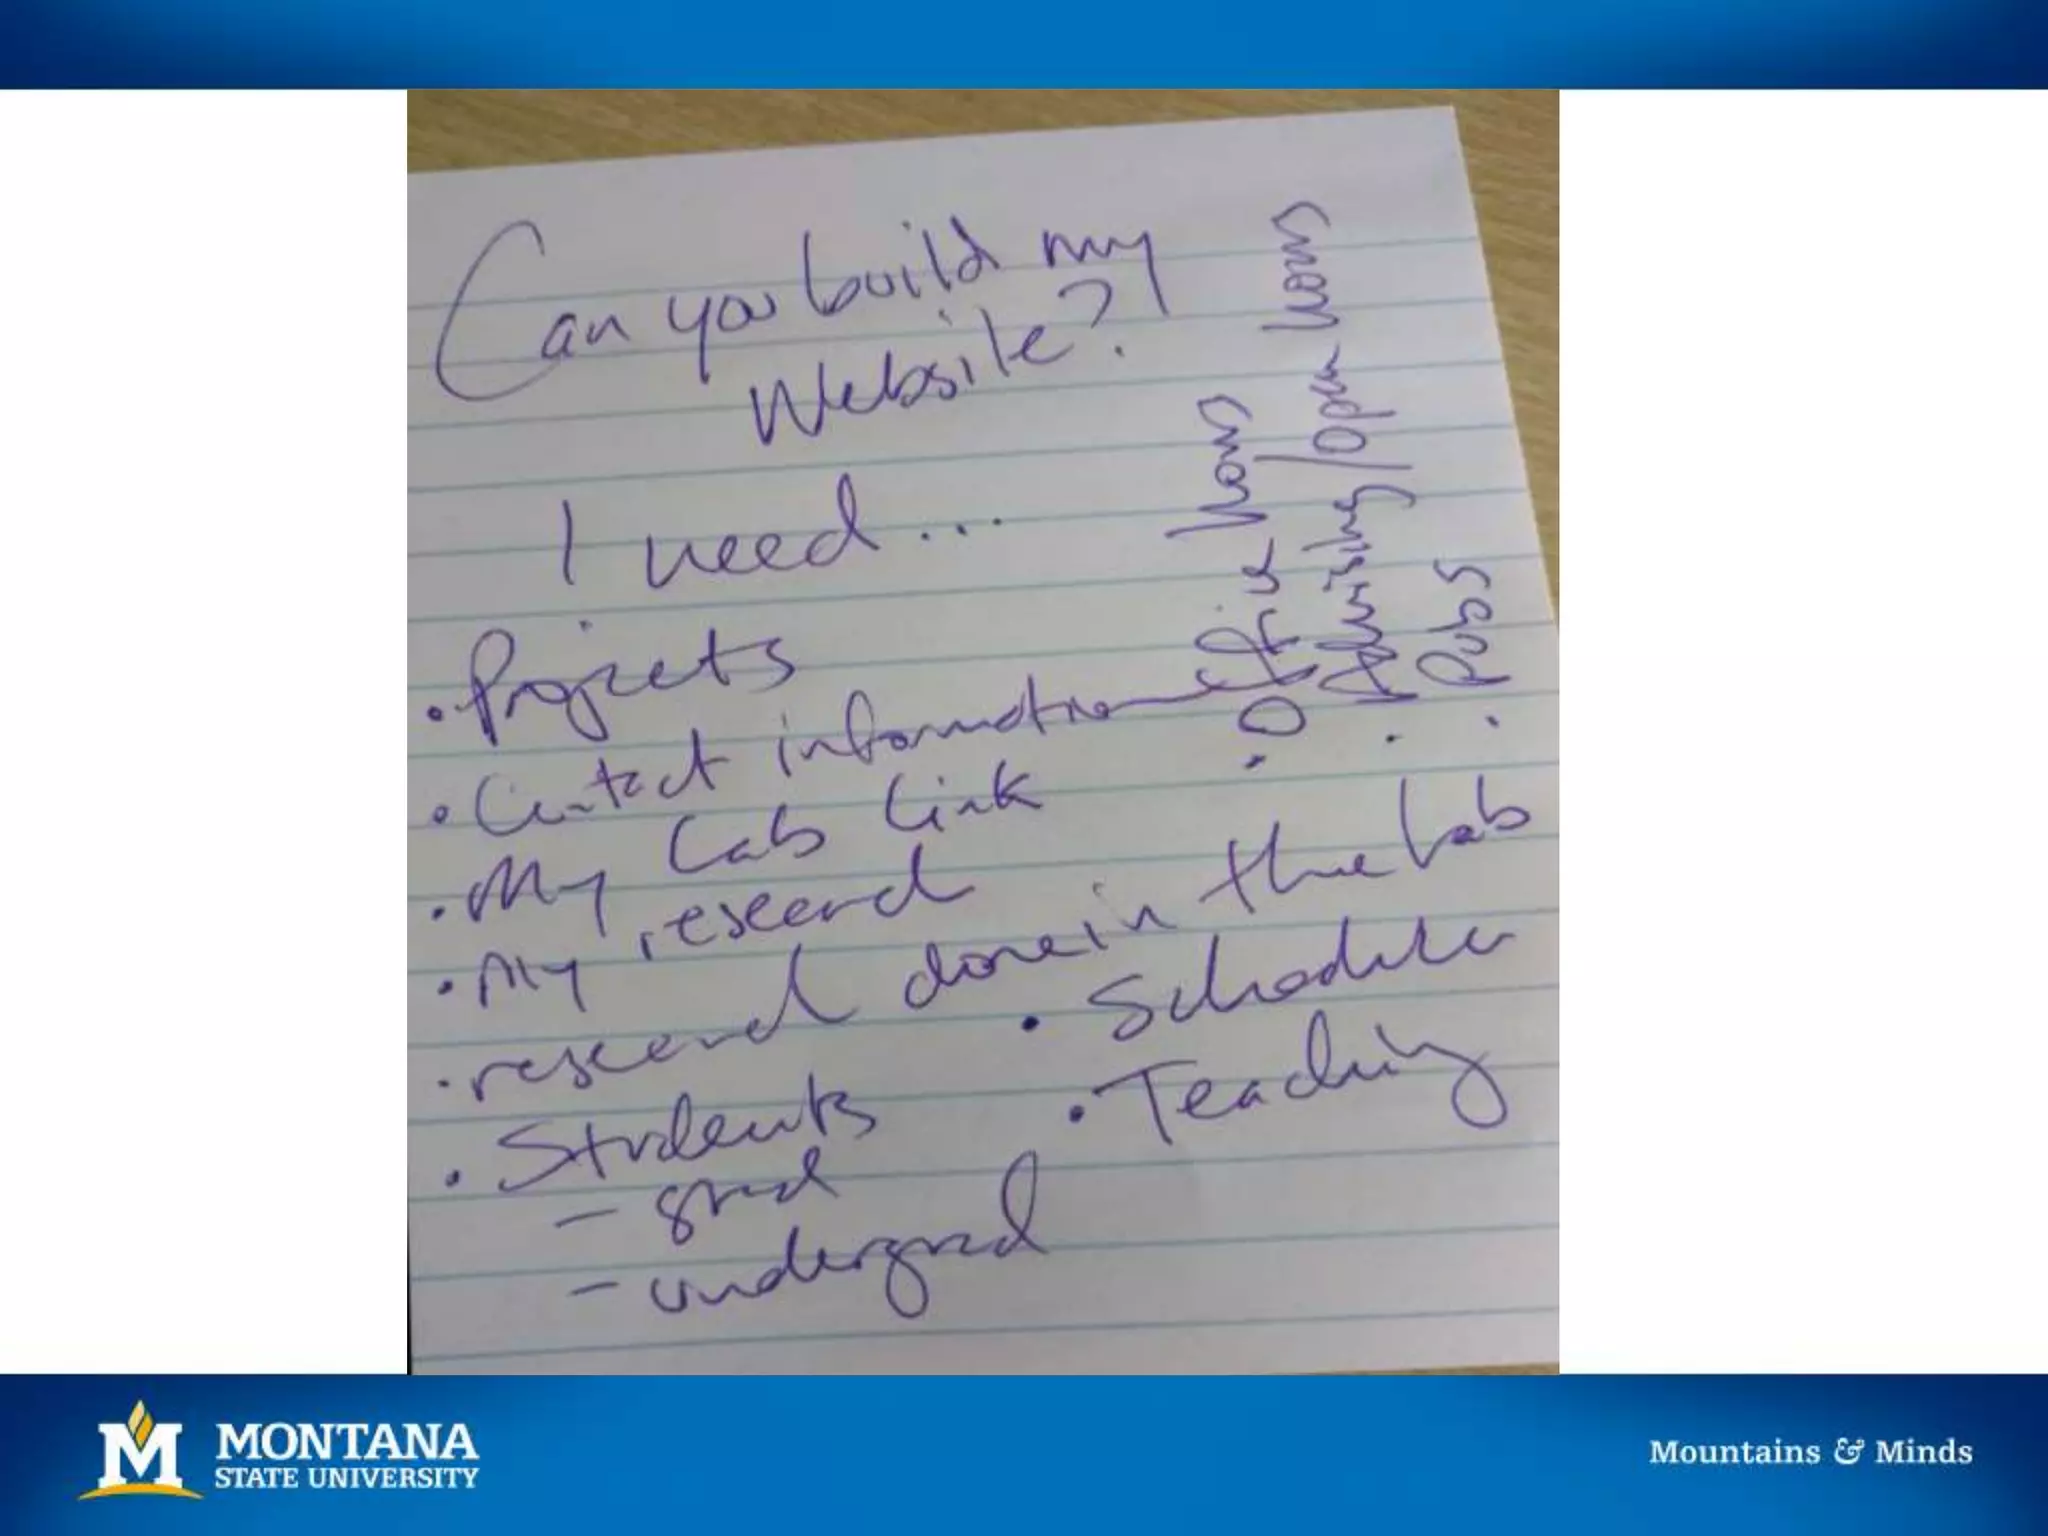 Can you build my
Website?
I need...
• Projects
• Contact information
• My Lab Link
• My research
• research done in the lab
• Students
- grad
- undergrad
• Schedule
• Teaching
• Office Hours
• Advising/Open Hours
• Pubs
MONTANA
STATE UNIVERSITY
Mountains & Minds